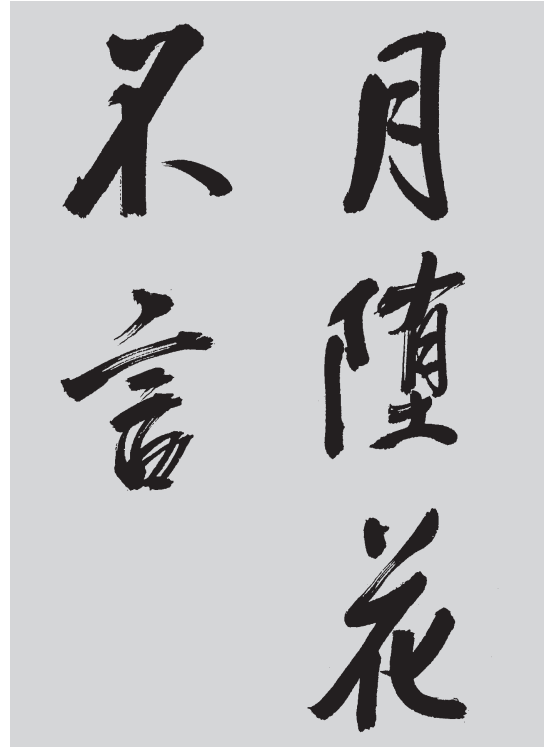 月堕花
不言